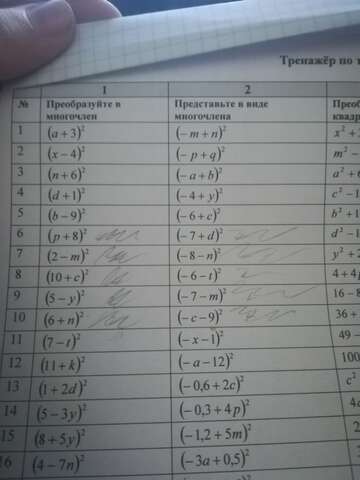 Тренажёр по
1 2
№ Преобразуйте в многочлен Представьте в виде многочлена
1 (a + 3)² (– m + n)² x² +
2 (x – 4)² (– p + q)² m² –
3 (n + 6)² (– a + b)² a² +
4 (d + 1)² (– 4 + y)² c² – 1
5 (b – 9)² (– 6 + c)² b² + 1
6 (p + 8)² (– 7 + d)² d² – 1
7 (2 – m)² (– 8 – n)² y² +
8 (10 + c)² (– 6 – t)² 4 + 4
9 (5 – y)² (– 7 – m)² 16 – 8
10 (6 + n)² (– c – 9)² 36 +
11 (7 – t)² (– x – 1)² 49 –
12 (11 + k)² (– a – 12)² 100
13 (1 + 2d)² (– 0,6 + 2c)² c²
14 (5 – 3y)² (– 0,3 + 4p)²
15 (8 + 5y)² (– 1,2 + 5m)²
16 (4 – 7n)² (– 3a + 0,5)²